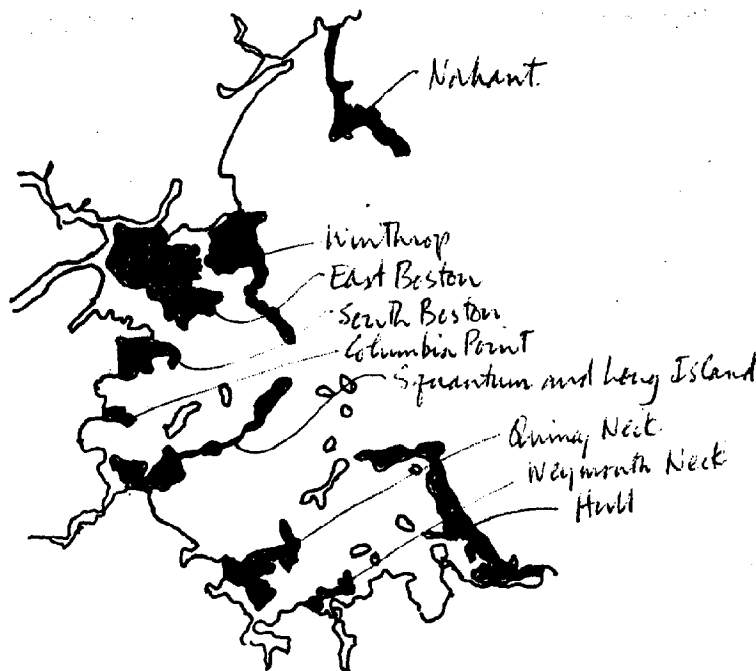 Nahant.
Winthrop
East Boston
South Boston
Columbia Point
Squantum and Long Island
Quincy Neck
Weymouth Neck
Hull